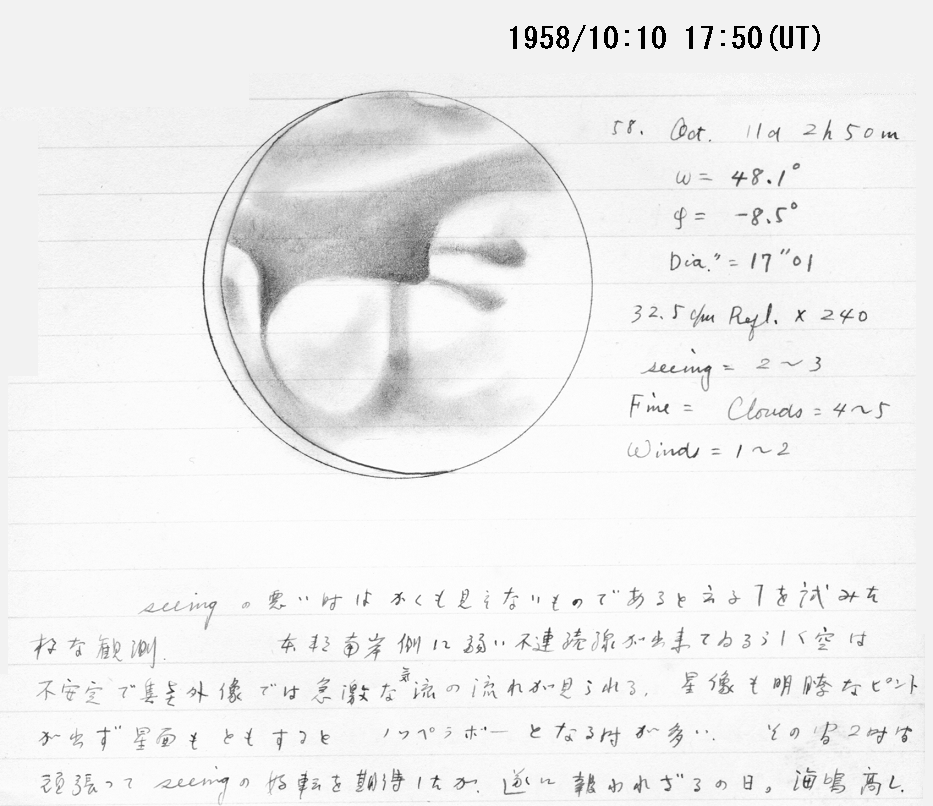 1958/10:10 17:50(UT)
58. Oct. 11d 2h 50m
ω = 48.1°
φ = -8.5°
Dia." = 17"01
32.5cm Refl. × 240
seeing = 2~3
Fine = Clouds = 4~5
Winds = 1~2
seeing の悪い時はかくも見えないものであると云う を試みた
様な観測. 本邦南岸側に弱い不連続線が出来てゐるらしく空は
不安定で焦点外像では急激な気流の流れが見られる. 星像も明瞭なピント
が出ず星面もともすると ノッペラボーとなる時が多い. その 2時間
頑張って seeing の好転を期待したが. 遂に報われざるの日。海鳴高し.